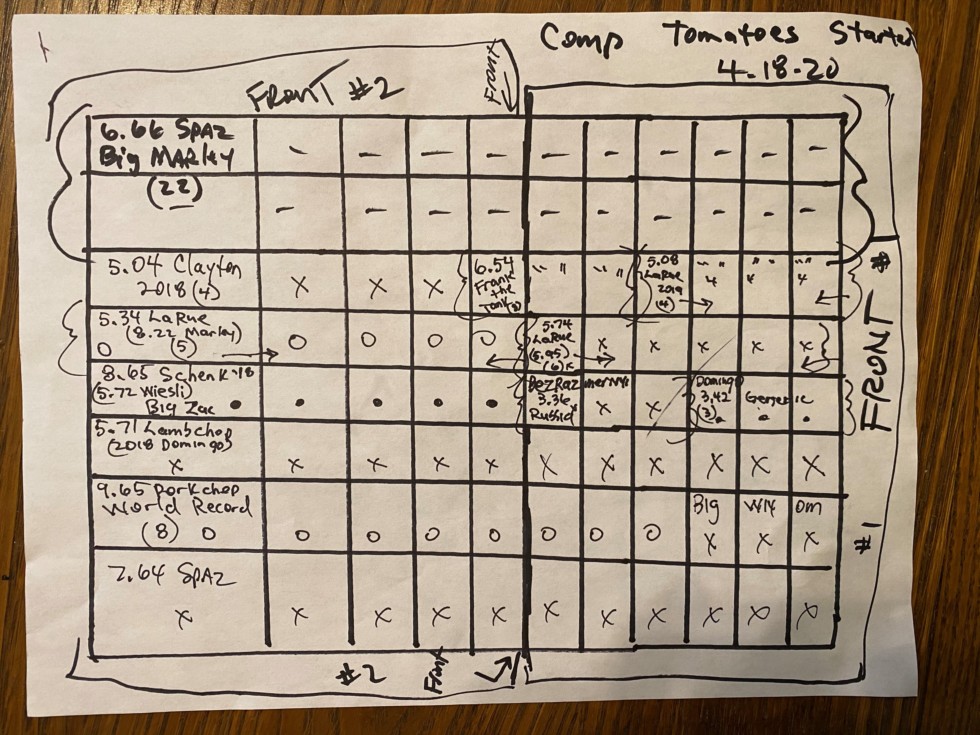 Comp Tomatoes Started
4.18.20
Front #2
Front
6.66 Spaz
Big Marley
(22)
- - - - - - - - - -
- - - - - - - - - -
5.04 Clayton
2018 (4)
X X X
6.54
Frank
the
Tank
" " " "
5.08
LaRue
2019
(4)
" " " " " "
5.34 LaRue
(8.22 Marley)
O (5)
O O O O
5.74
LaRue
(5.95)
(6) x
x x x x x
8.65 Schenk '18
(5.72 Wiesli)
Big Zac •
• • • •
BezRaz
3.36
Russia
x x
Domingo
3.42
(3) •
• •
5.71 Lambchop
(2018 Domingo)
X X X X X X X X X X X
9.65 Porkchop
World Record
(8) O O O O O O O O
Big
X X X
7.64 Spaz
X X X X X X X X X X X
#2 Front
Front
#1